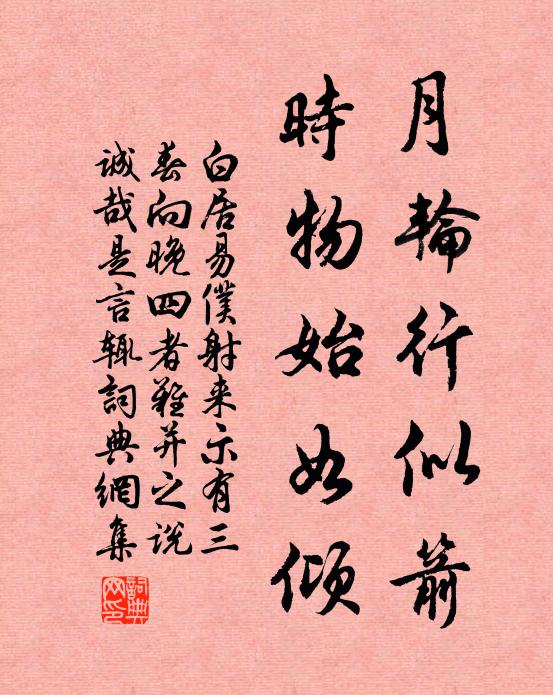 月輪行似箭
時物始如傾
白居易僕射来示有三
春向晚四者難并之说
誠哉是言輒詞典網集
詞典網印